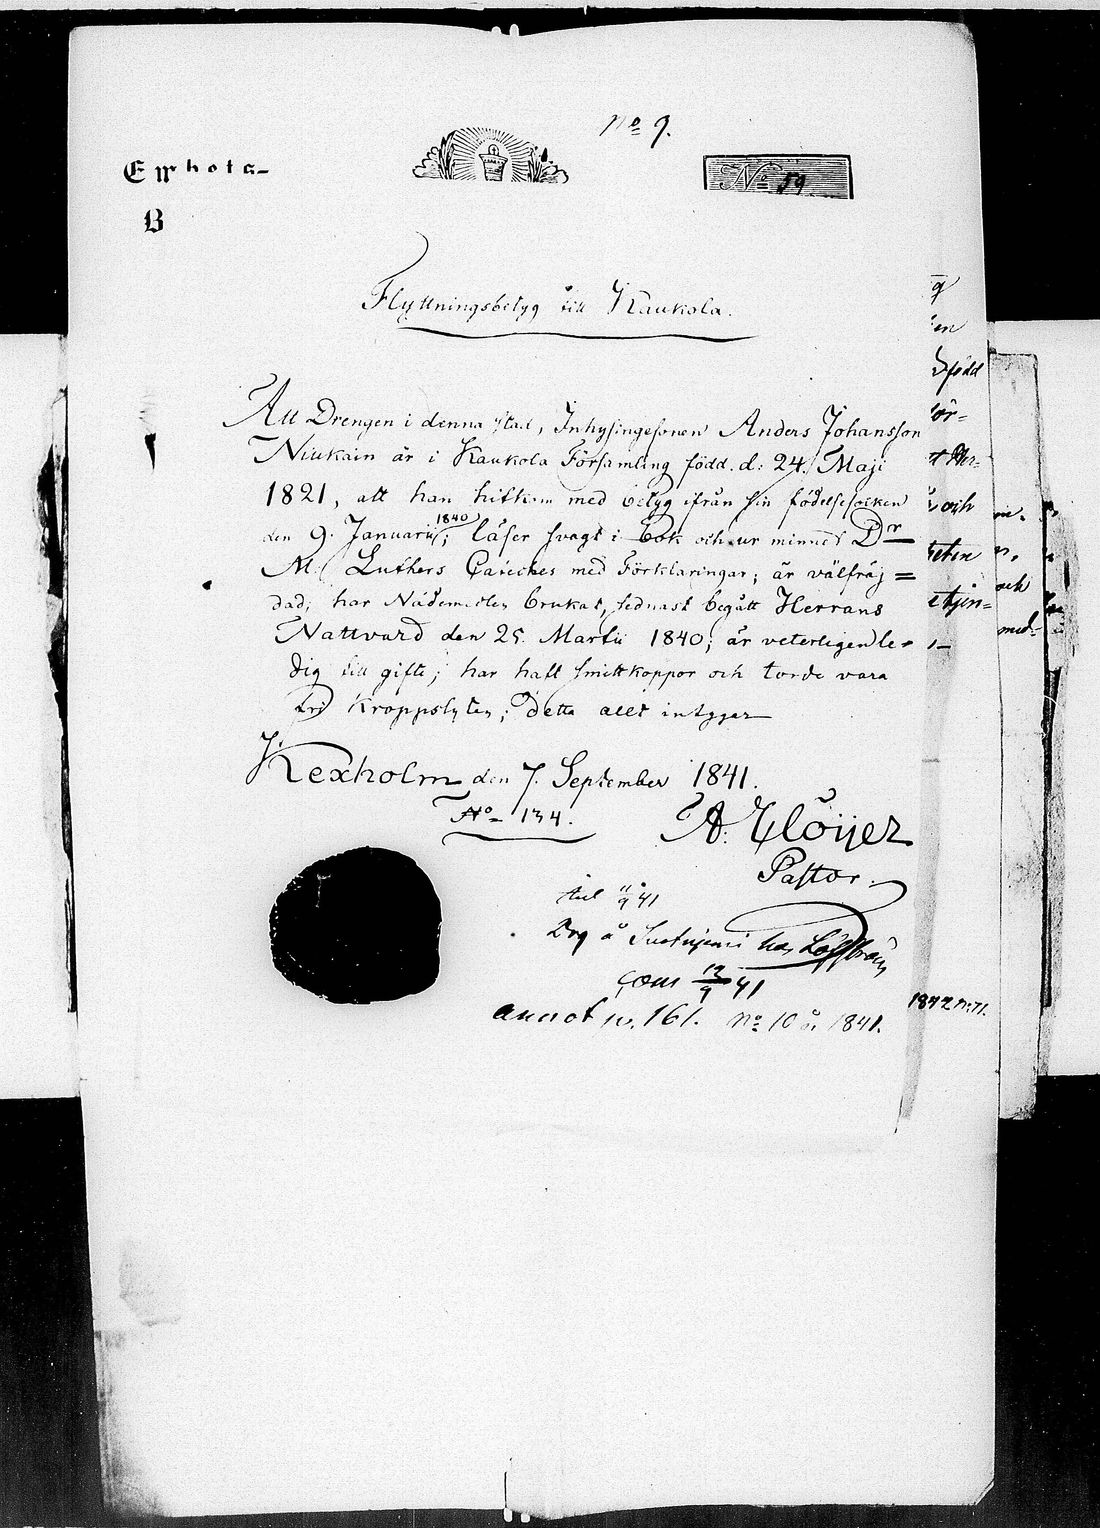 No 9.
No 59
B
Flyttningsbetyg till Kaukola.
Att Drengen i denna stad, Inhysingesonen Anders Johansson
Niukain är i Kaukola Församling född d: 24 Maji
1821, att han hitkom med betyg ifrån sin födelsesocken
den 9. Januarii 1840; läser svagt i bok och ur minnet Dr
M. Luthers Cateches med Förklaringar; är välfräj=
dad; har Nådemedlen brukat, sednast begått Herrans
Nattvard den 25 Martii 1840; är veterligen le-
dig till gifte; har haft smittkoppor och torde vara
fri Kroppslyten; Detta allt intygar
Kexholm den 7. September 1841.
No 134.
Pastor.
11/9 41
Drg å
13/9 41
annot p. 161. No 10 år 1841.
född
för=
och
och
med-
1842